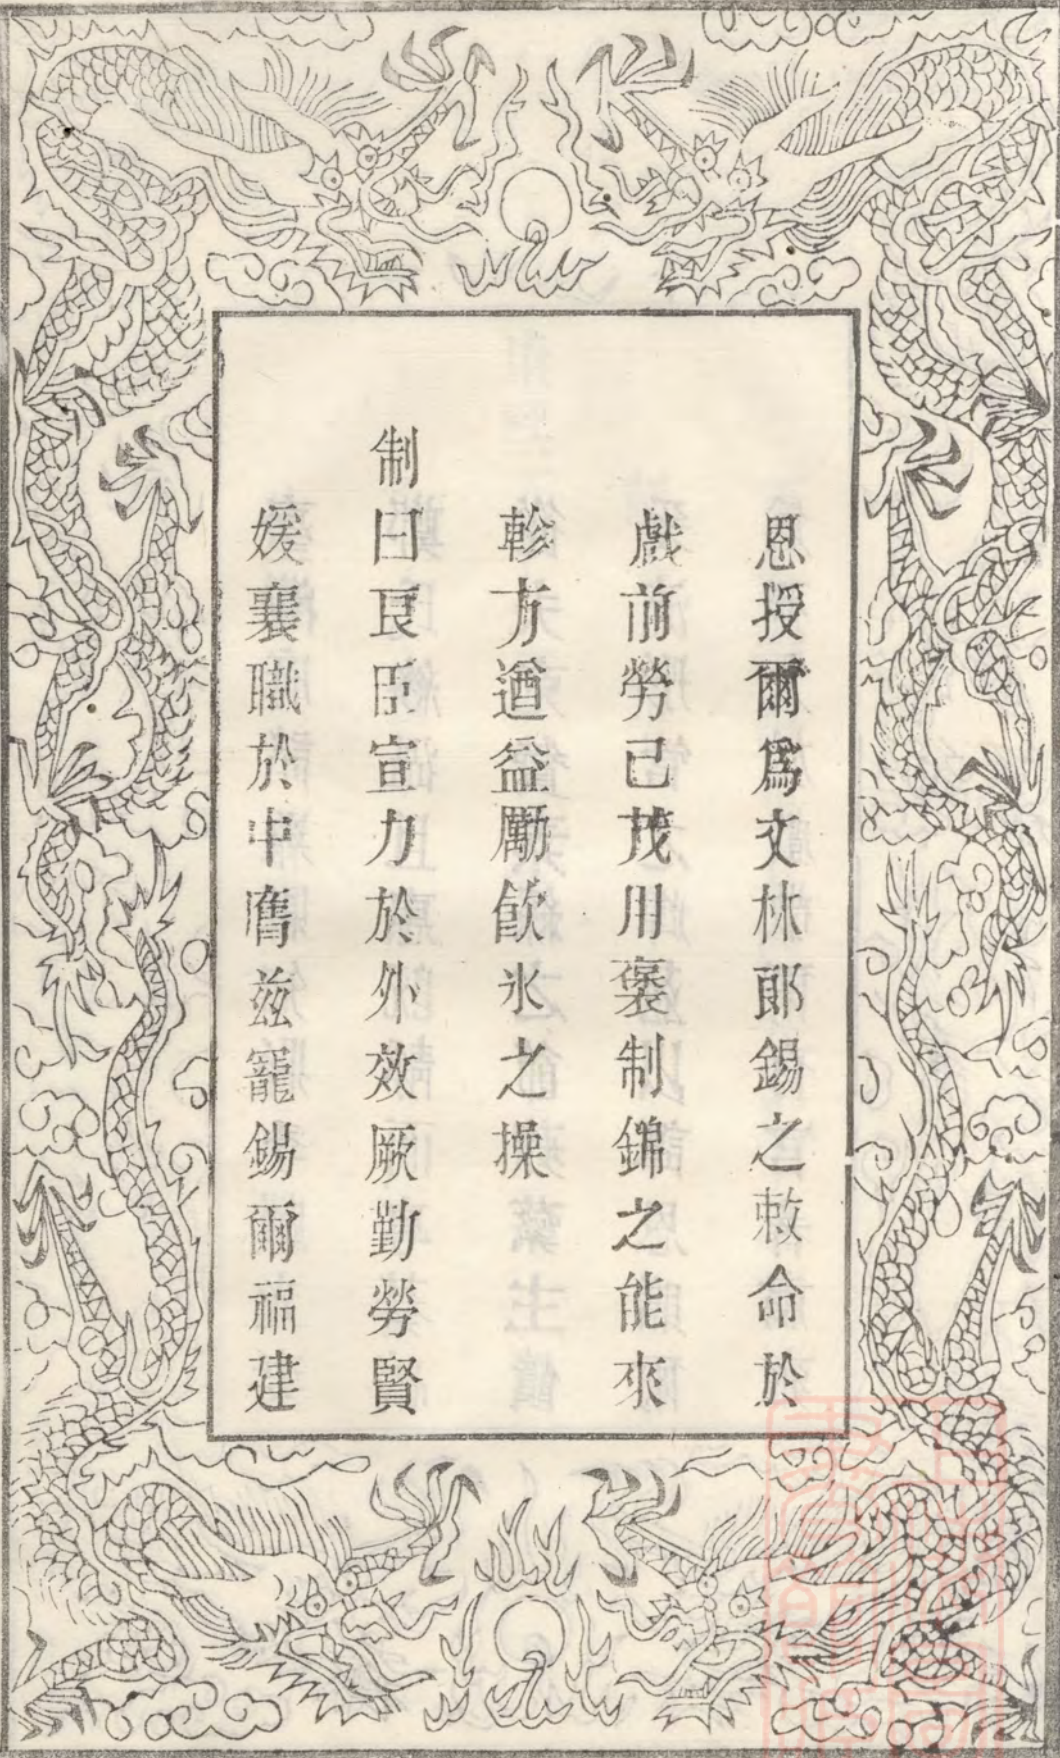 恩授爾爲文林郎錫之敕命於
戲前勞已茂用褒制錦之能來
軫方遒益勵飲氷之操
制曰良臣宣力於外效厥勤勞賢
媛襄職於中膺茲寵錫爾福建